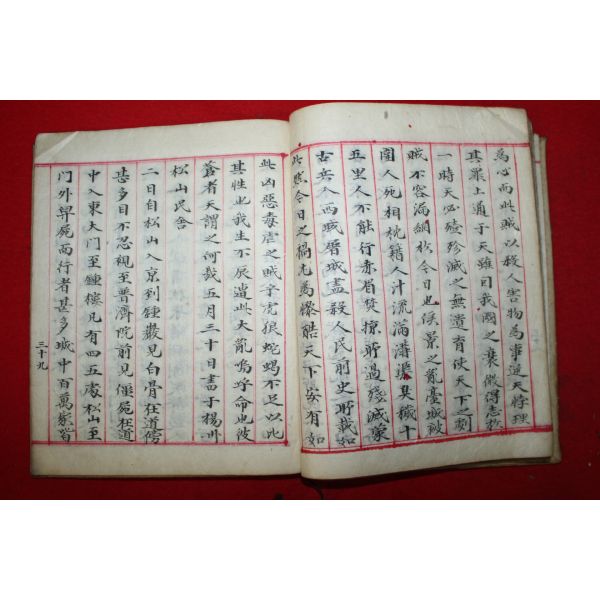 為心而此賊以殺人害物為事逆天悖理
其罪上通于天雖因我國之衰微得志於
一時天必殄滅之無遺育使天下之刻
賊不容漏網於今日也侯景之亂臺城被
圍人死相枕籍人汁流滿溝渠臭穢十
五里人不能行赤眉焚掠所過殘滅蒙
古兵入西城屠城盡殺人民前史所載如
此然今日之禍尤為慘酷天下安有如
此凶惡毒虐之賊乎虎狼蛇蝎不足以比
其性也我生不辰遭此大亂嗚呼命也彼
蒼者天謂之何哉五月三十日晝于楊州
松山民舍
二日自松山入京到鍾巖見白骨在道傍
甚多目不忍視至普濟院前見僵屍在道
中入東大門至鍾樓凡有四五處松山至
門外舁屍而行者甚多城中百萬家皆
三十九